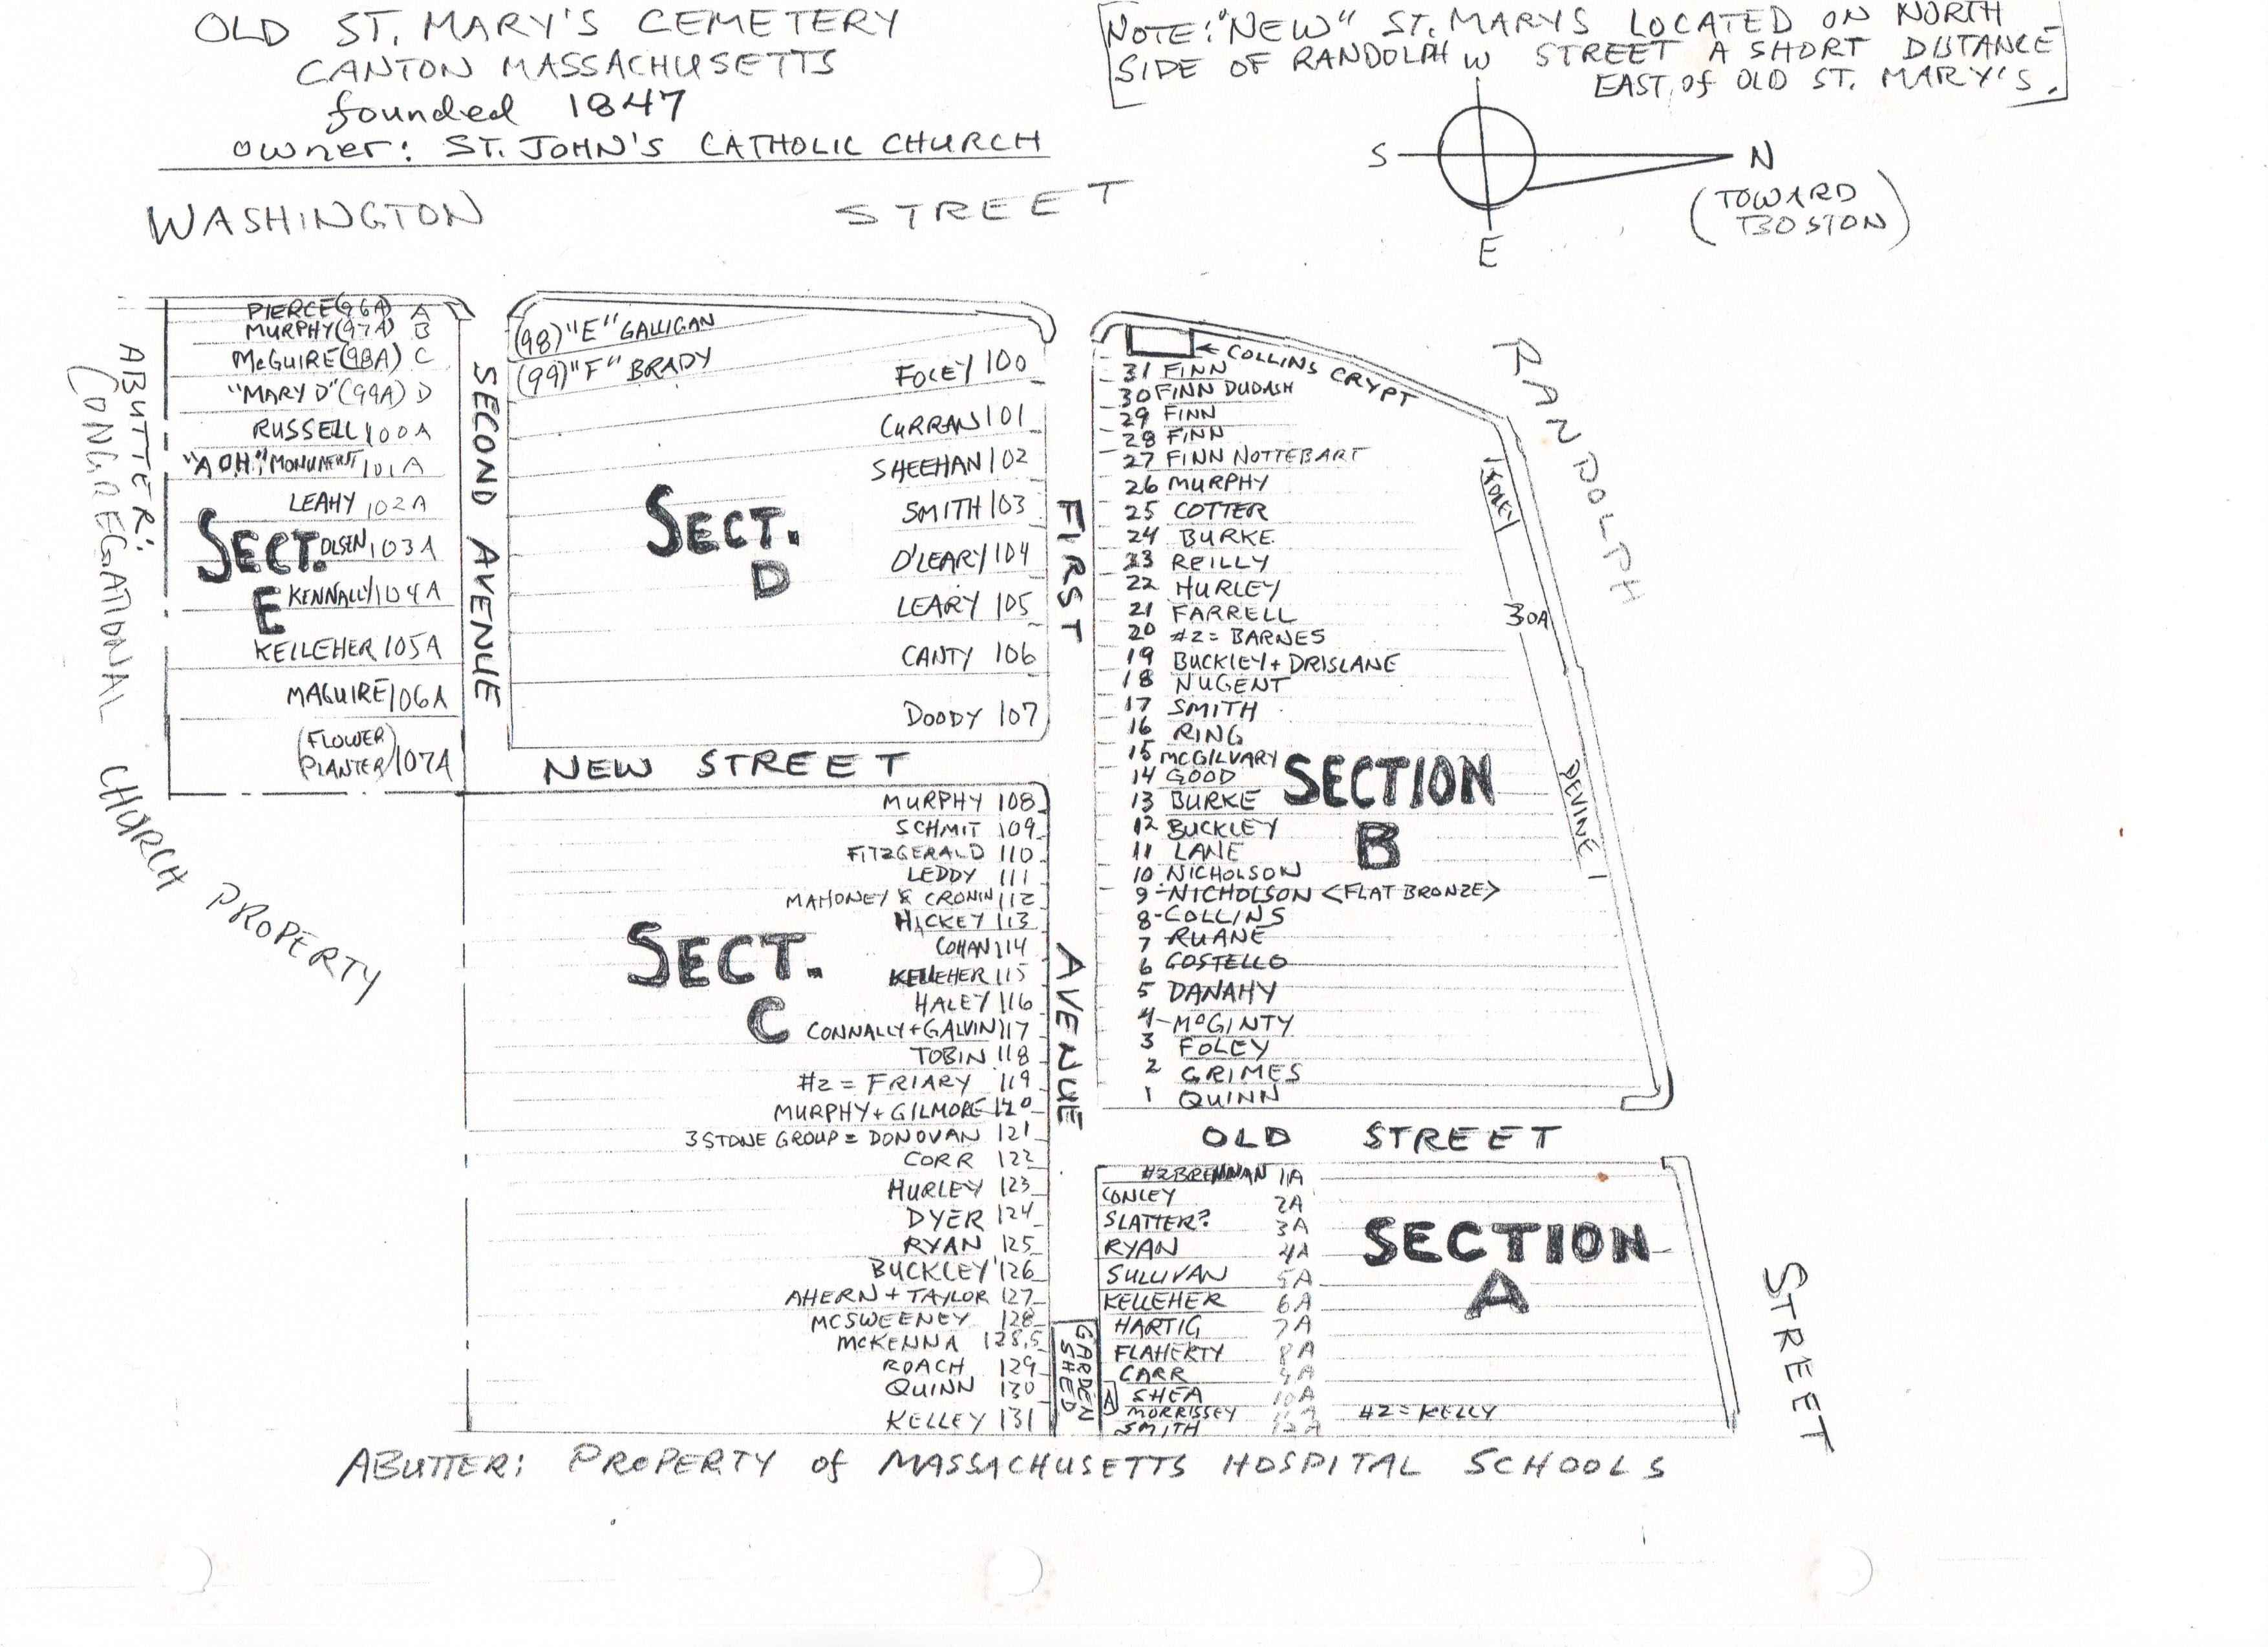 OLD ST. MARY'S CEMETERY
CANTON MASSACHUSETTS
founded 1847
owner: ST. JOHN'S CATHOLIC CHURCH
NOTE: "NEW" ST. MARYS LOCATED ON NORTH
SIDE OF RANDOLPH STREET A SHORT DISTANCE
EAST of OLD ST. MARY'S.
W
S
N
E
(TOWARD
BOSTON)
WASHINGTON STREET
ABUTTER:
CONGREGATIONAL CHURCH PROPERTY
PIERCE (96A) A
MURPHY (97A) B
McGUIRE (98A) C
"MARY D" (99A) D
RUSSELL 100A
"AOH" MONUMENT 101A
LEAHY 102A
OLSEN 103A
KENNALLY 104A
KELLEHER 105A
MAGUIRE 106A
(FLOWER
PLANTER) 107A
SECT.
E
SECOND AVENUE
(98) "E" GALLIGAN
(99) "F" BRADY
FOLEY 100
CURRAN 101
SHEEHAN 102
SMITH 103
O'LEARY 104
LEARY 105
CANTY 106
DOODY 107
SECT.
D
NEW STREET
FIRST AVENUE
MURPHY 108
SCHMIT 109
FITZGERALD 110
LEDDY 111
MAHONEY & CRONIN 112
HICKEY 113
COHAN 114
KELLEHER 115
HALEY 116
CONNALLY + GALVIN 117
TOBIN 118
#2 = FRIARY 119
MURPHY + GILMORE 120
3 STONE GROUP = DONOVAN 121
CORR 122
HURLEY 123
DYER 124
RYAN 125
BUCKLEY 126
AHERN + TAYLOR 127
MCSWEENEY 128
MCKENNA 128.5
ROACH 129
QUINN 130
KELLEY 131
SECT.
C
GARDEN
SHED
← COLLINS CRYPT
31 FINN
30 FINN DUDASH
29 FINN
28 FINN
27 FINN NOTTEBART
26 MURPHY
25 COTTER
24 BURKE
23 REILLY
22 HURLEY
21 FARRELL
20 #2 = BARNES
19 BUCKLEY + DRISLANE
18 NUGENT
17 SMITH
16 RING
15 MCGILVARY
14 GOOD
13 BURKE
12 BUCKLEY
11 LANE
10 NICHOLSON
9 - NICHOLSON <FLAT BRONZE>
8 - COLLINS
7 RUANE
6 COSTELLO
5 DANAHY
4 - McGINTY
3 FOLEY
2 GRIMES
1 QUINN
SECTION
B
FOLEY
30A
DEVINE
RANDOLPH STREET
OLD STREET
#2 BRENNAN 1A
CONLEY 2A
SLATTER? 3A
RYAN 4A
SULLIVAN 5A
KELLEHER 6A
HARTIG 7A
FLAHERTY 8A
CARR 9A
SHEA 10A
MORRISSEY #2 = KELLY
SMITH 12A
SECTION
A
ABUTTER: PROPERTY of MASSACHUSETTS HOSPITAL SCHOOLS